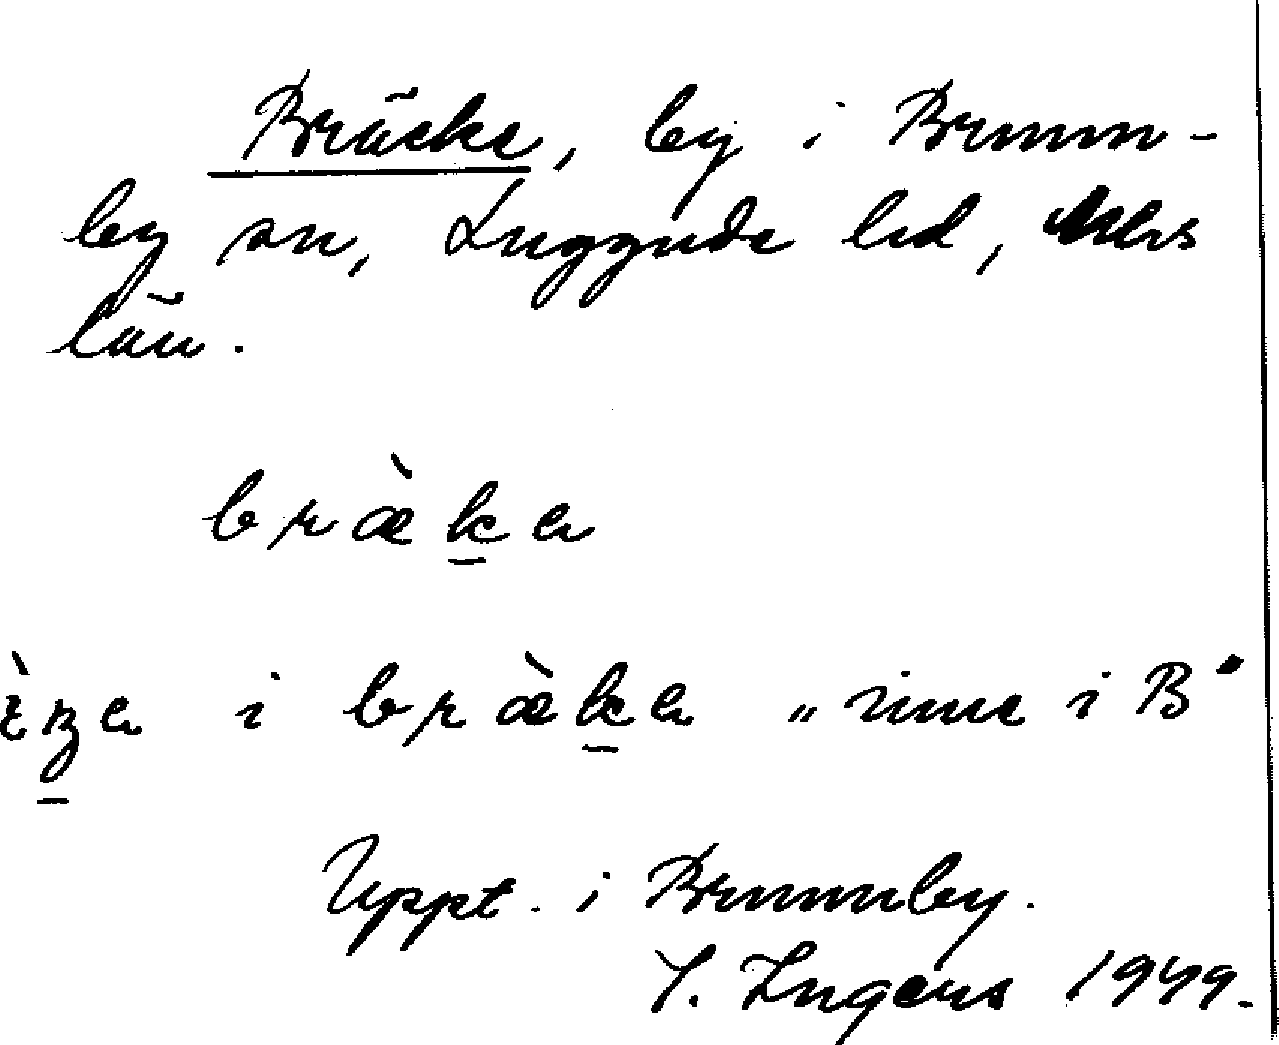 Bräcke, by i Brunn-
by sn, Luggude hd, Mhs
län.
bræ̀ḵa
i bræ̀ḵa „inne i B"
Uppt. i Brunnby.
I. Ingers 1949.